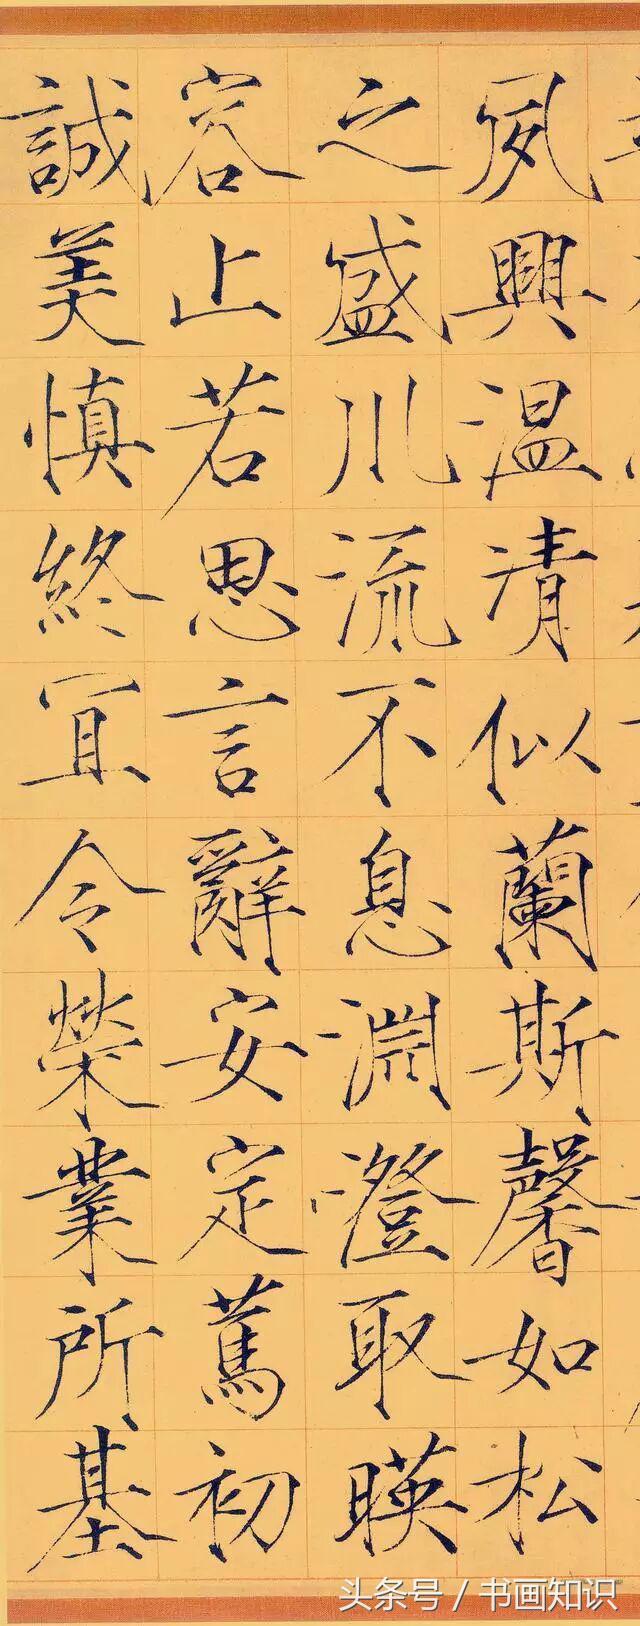 夙興温凊似蘭斯馨如松
之盛川流不息淵澄取暎
容止若思言辭安定篤初
誠美慎終宜令榮業所基
头条号 / 书画知识